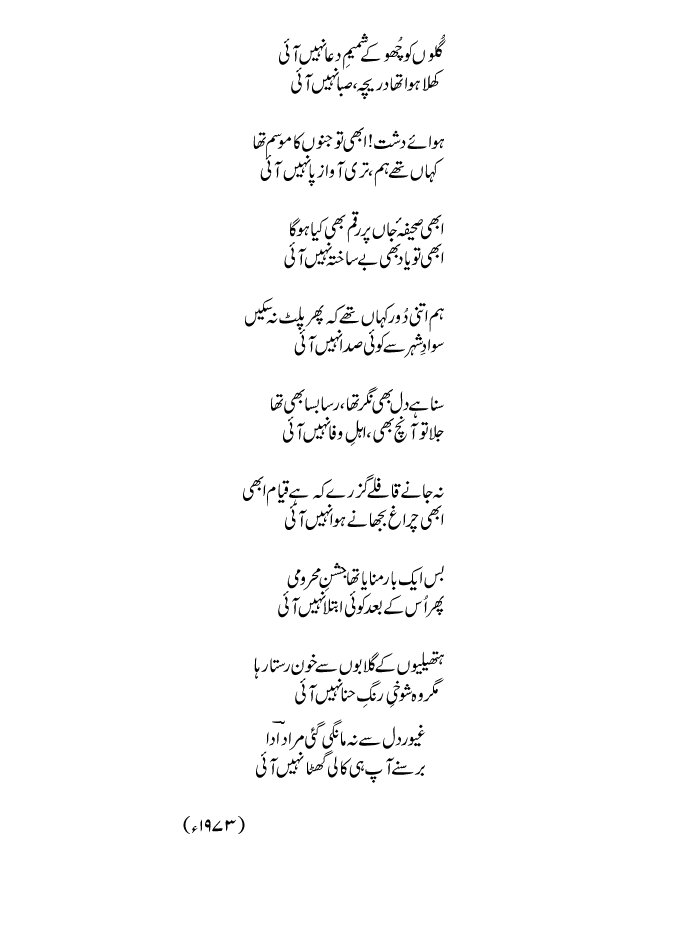 گُلوں کو چُھو کے شمیمِ دعا نہیں آئی
کھلا ہوا تھا دریچہ، صبا نہیں آئی
ہوائے دشت! ابھی تو جنوں کا موسم تھا
کہاں تھے ہم، تری آوازِ پا نہیں آئی
ابھی صحیفۂ جاں پر رقم بھی کیا ہوگا
ابھی تو یاد بھی بے ساختہ نہیں آئی
ہم اتنی دُور کہاں تھے کہ پھر پلٹ نہ سکیں
سوادِ شہر سے کوئی صدا نہیں آئی
سنا ہے دل بھی نگر تھا، رسا بسا بھی تھا
جلا تو آنچ بھی، اہلِ وفا نہیں آئی
نہ جانے قافلے گزرے کہ ہے قیام ابھی
ابھی چراغ بجھانے ہوا نہیں آئی
بس ایک بار منایا تھا جشنِ محرومی
پھر اُس کے بعد کوئی ابتلا نہیں آئی
ہتھیلیوں کے گلابوں سے خون رستا رہا
مگر وہ شوخیِ رنگِ حنا نہیں آئی
غیور دل سے نہ مانگی گئی مراد اداؔ
برسنے آپ ہی کالی گھٹا نہیں آئی
(۱۹۷۳ء)